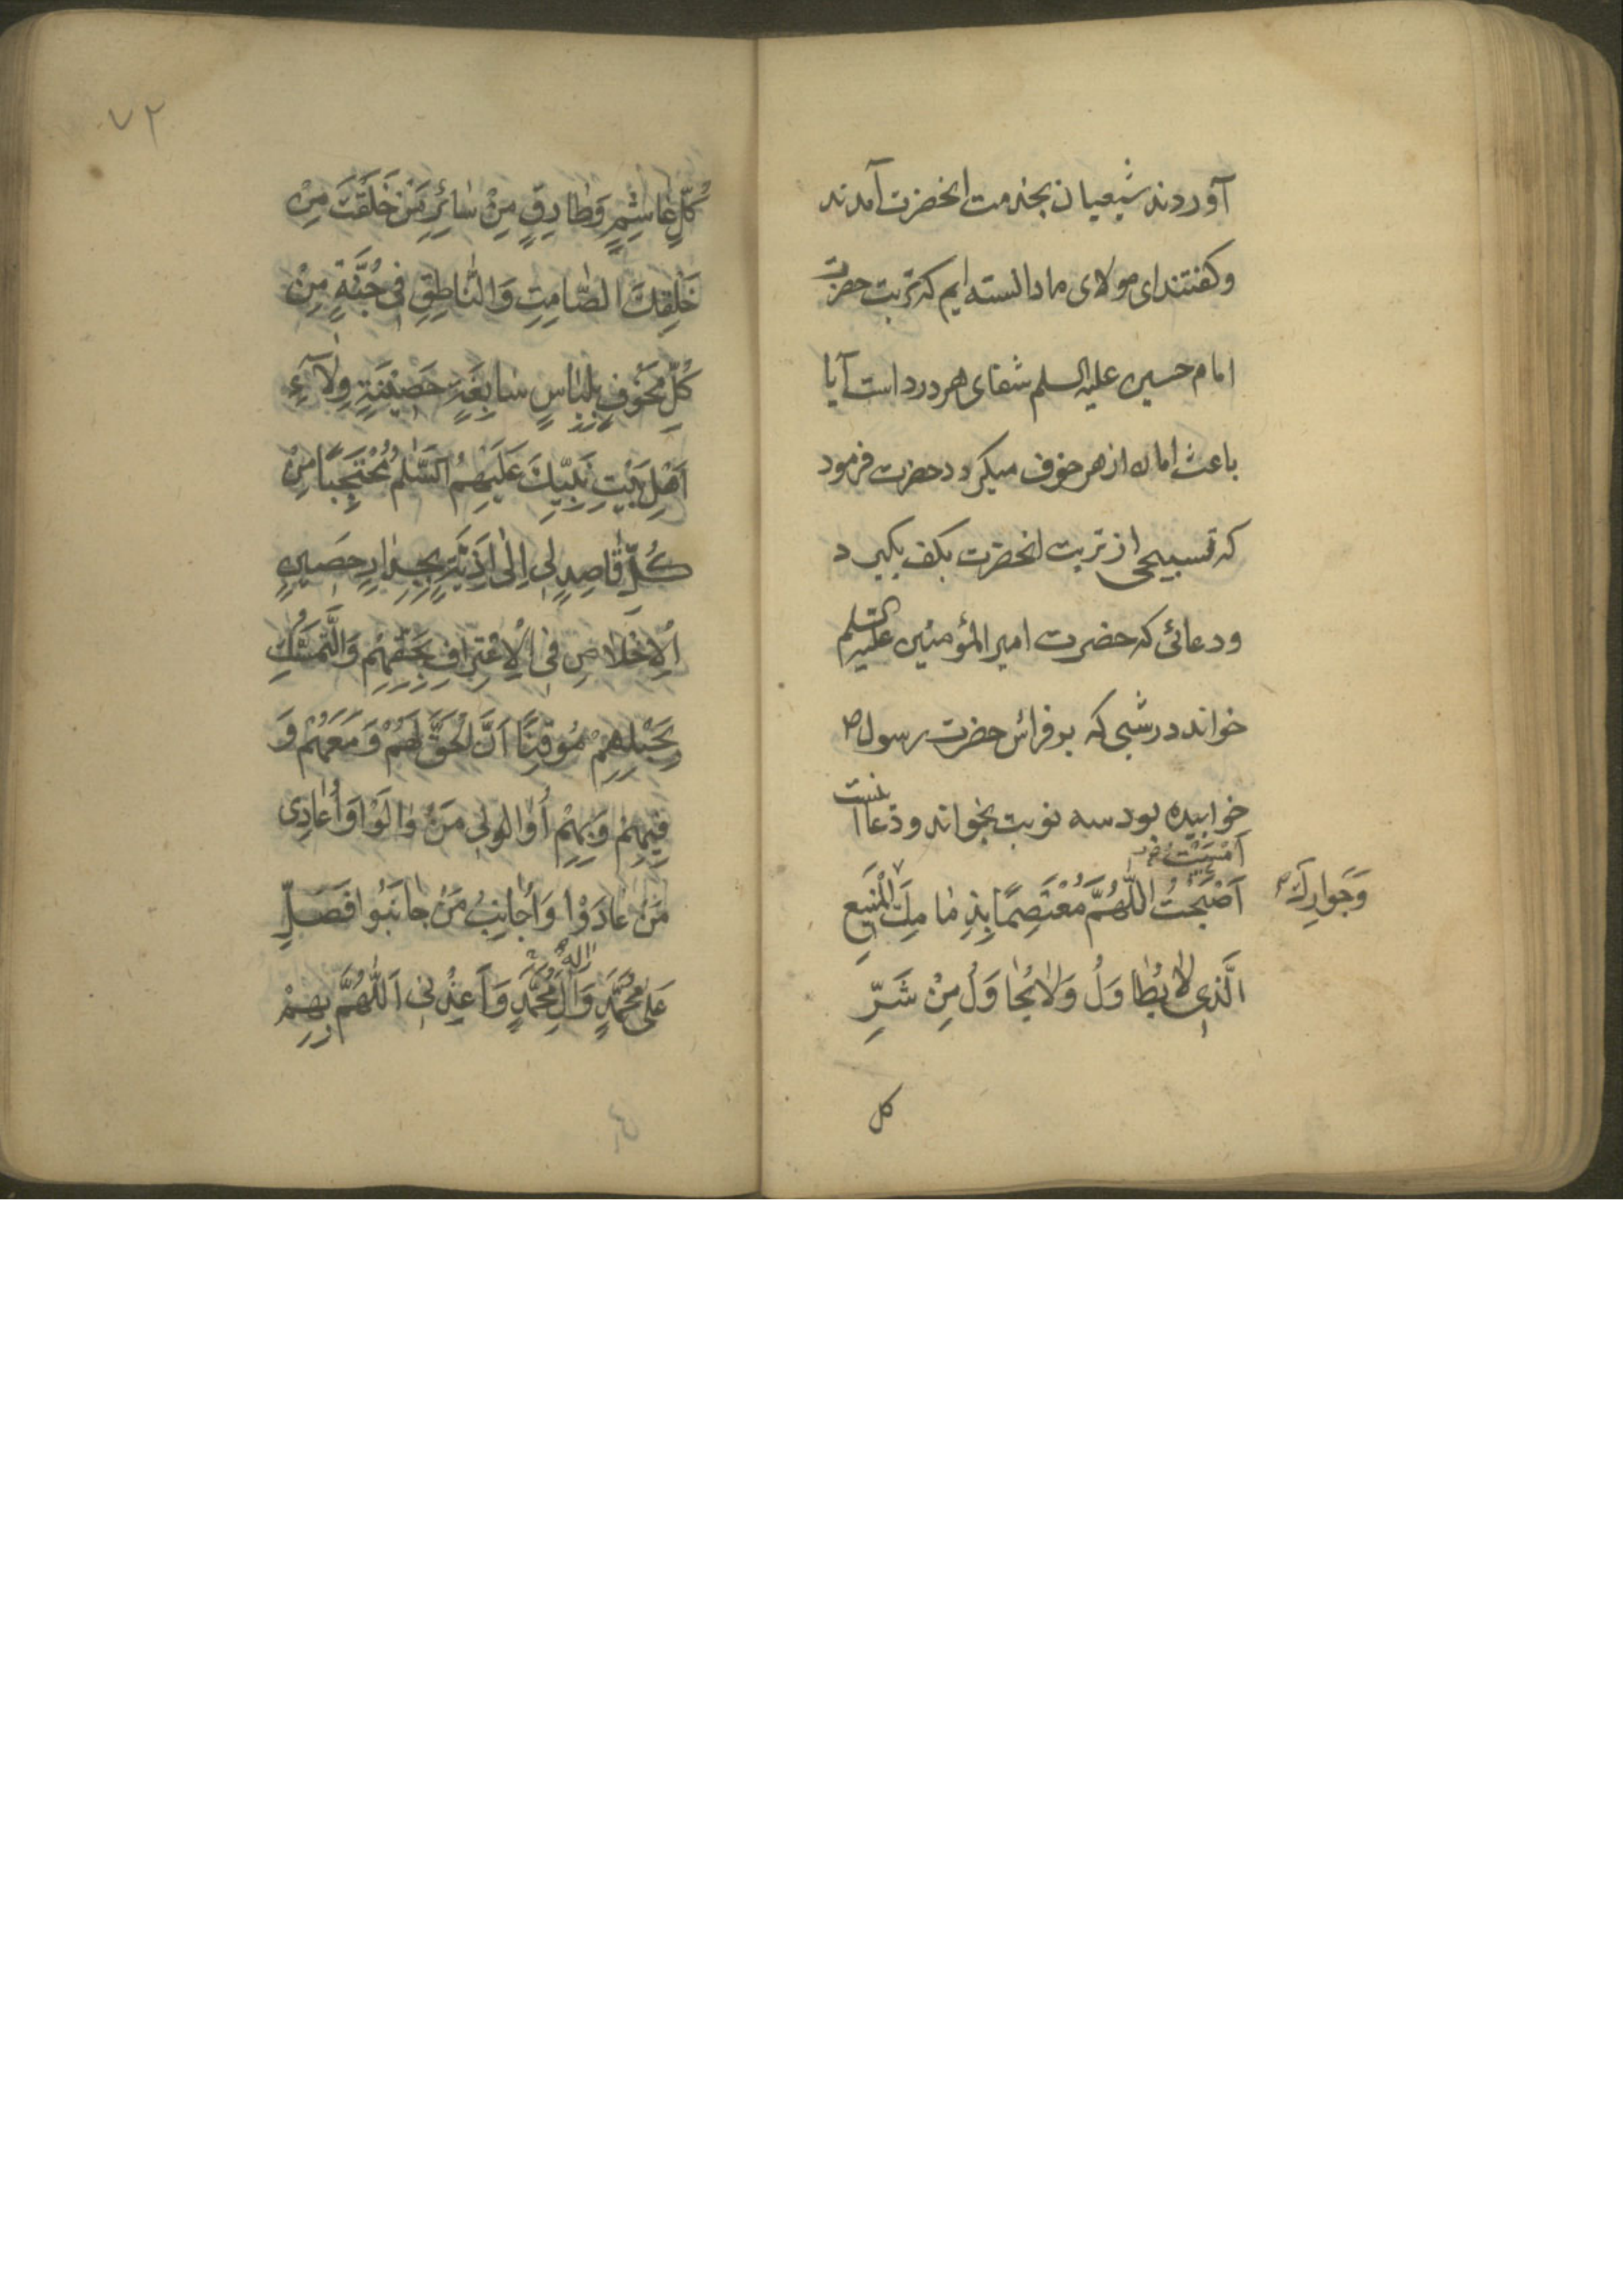 آوردند شیعیان بخدمت انحضرت آمدند
وکفتند ای مولای ما دانسته ایم که تربت حضرت
امام حسین علیه السلم شفای هر درد است آیا
باعث امان از هر خوف میکردد حضرت فرمود
که تسبیحی از تربت انحضرت بکف بکیرد
ودعائی که حضرت امیر المؤمنین علیه السلم
خواند در شبی که بر فراش حضرت رسول ص
خوابیده بود سه نوبت بخواند ودعا اینست
اَمْسَیْتُ
اَصْبَحْتُ اللّٰهُمَّ مُعْتَصِمًا بِذِمٰامِكَ الْمَنیعِ
وَجَوارِكَ
الَّذی لاٰ یُطٰاوَلُ وَلاٰ یُحٰاوَلُ مِنْ شَرِّ
کل
۷۲
کُلِّ غٰاشِمٍ وَطٰارِقٍ مِنْ سٰائِرِ مَنْ خَلَقْتَ مِنْ
خَلْقِكَ الصّٰامِتِ وَالنّٰاطِقِ فی جُنَّةٍ مِنْ
کُلِّ مَخُوفٍ بِلِبٰاسٍ سٰابِغَةٍ حَصینَةٍ وِلاٰءِ
اَهْلِ بَیْتِ نَبِیِّكَ عَلَیْهِمُ السَّلٰمُ مُحْتَجِبًا مِنْ
کُلِّ قٰاصِدٍ لی اِلٰی اَذِیَّةٍ بِجِدٰارٍ حَصینٍ
اَلْاِخْلاٰصِ فی الْاِعْتِرٰافِ بِحَقِّهِمْ وَالتَّمَسُّكِ
بِحَبْلِهِمْ مُوقِنًا اَنَّ الْحَقَّ لَهُمْ وَمَعَهُمْ وَ
فیهِمْ وَبِهِمْ اُوٰالی مَنْ وٰالَوْا وَاُعٰادِی
مَنْ عٰادَوْا وَاُجٰانِبُ مَنْ جٰانَبُوا فَصَلِّ
عَلٰی مُحَمَّدٍ وَآلِ مُحَمَّدٍ وَاَعِذْنی اَللّٰهُمَّ بِهِمْ